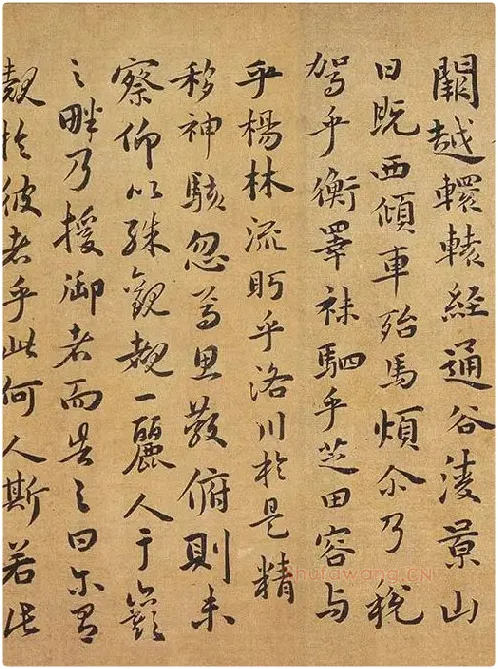 闕越轘轅經通谷陵景山
日既西傾車殆馬煩尒乃稅
駕乎衡皋秣駟乎芝田容與
乎楊林流眄乎洛川於是精
移神駭忽焉思散俯則未
察仰以殊觀覩一麗人于巖
之畔乃援御者而告之曰尒有
覿於彼者乎此何人斯若此